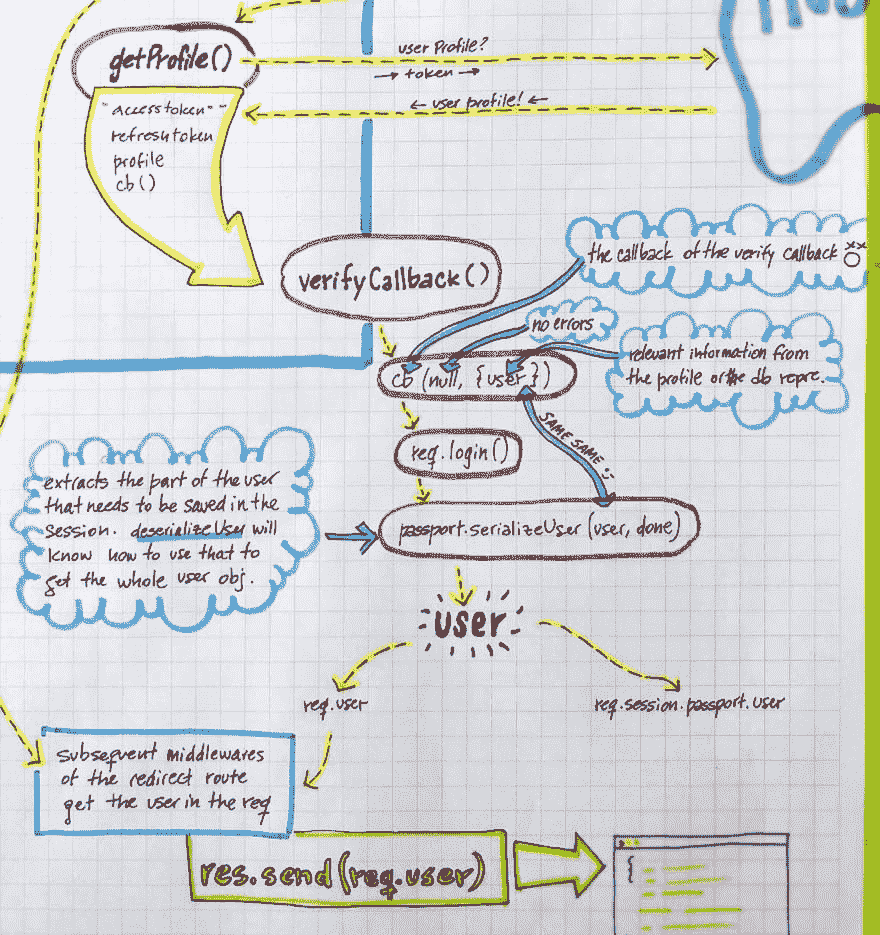 getProfile()
user Profile?
→ token →
← user profile! ←
"accesstoken"
refreshtoken
profile
cb()
verifyCallback()
the callback of the verify callback
no errors
relevant information from
the profile or the db repre.
cb (null, {user})
SAME SAME
req.login()
extracts the part of the user
that needs to be saved in the
session. deserializeUser will
know how to use that to
get the whole user obj.
passport.serializeUser (user, done)
user
req.user
req.session.passport.user
subsequent middlewares
of the redirect route
get the user in the req
res.send(req.user)
{